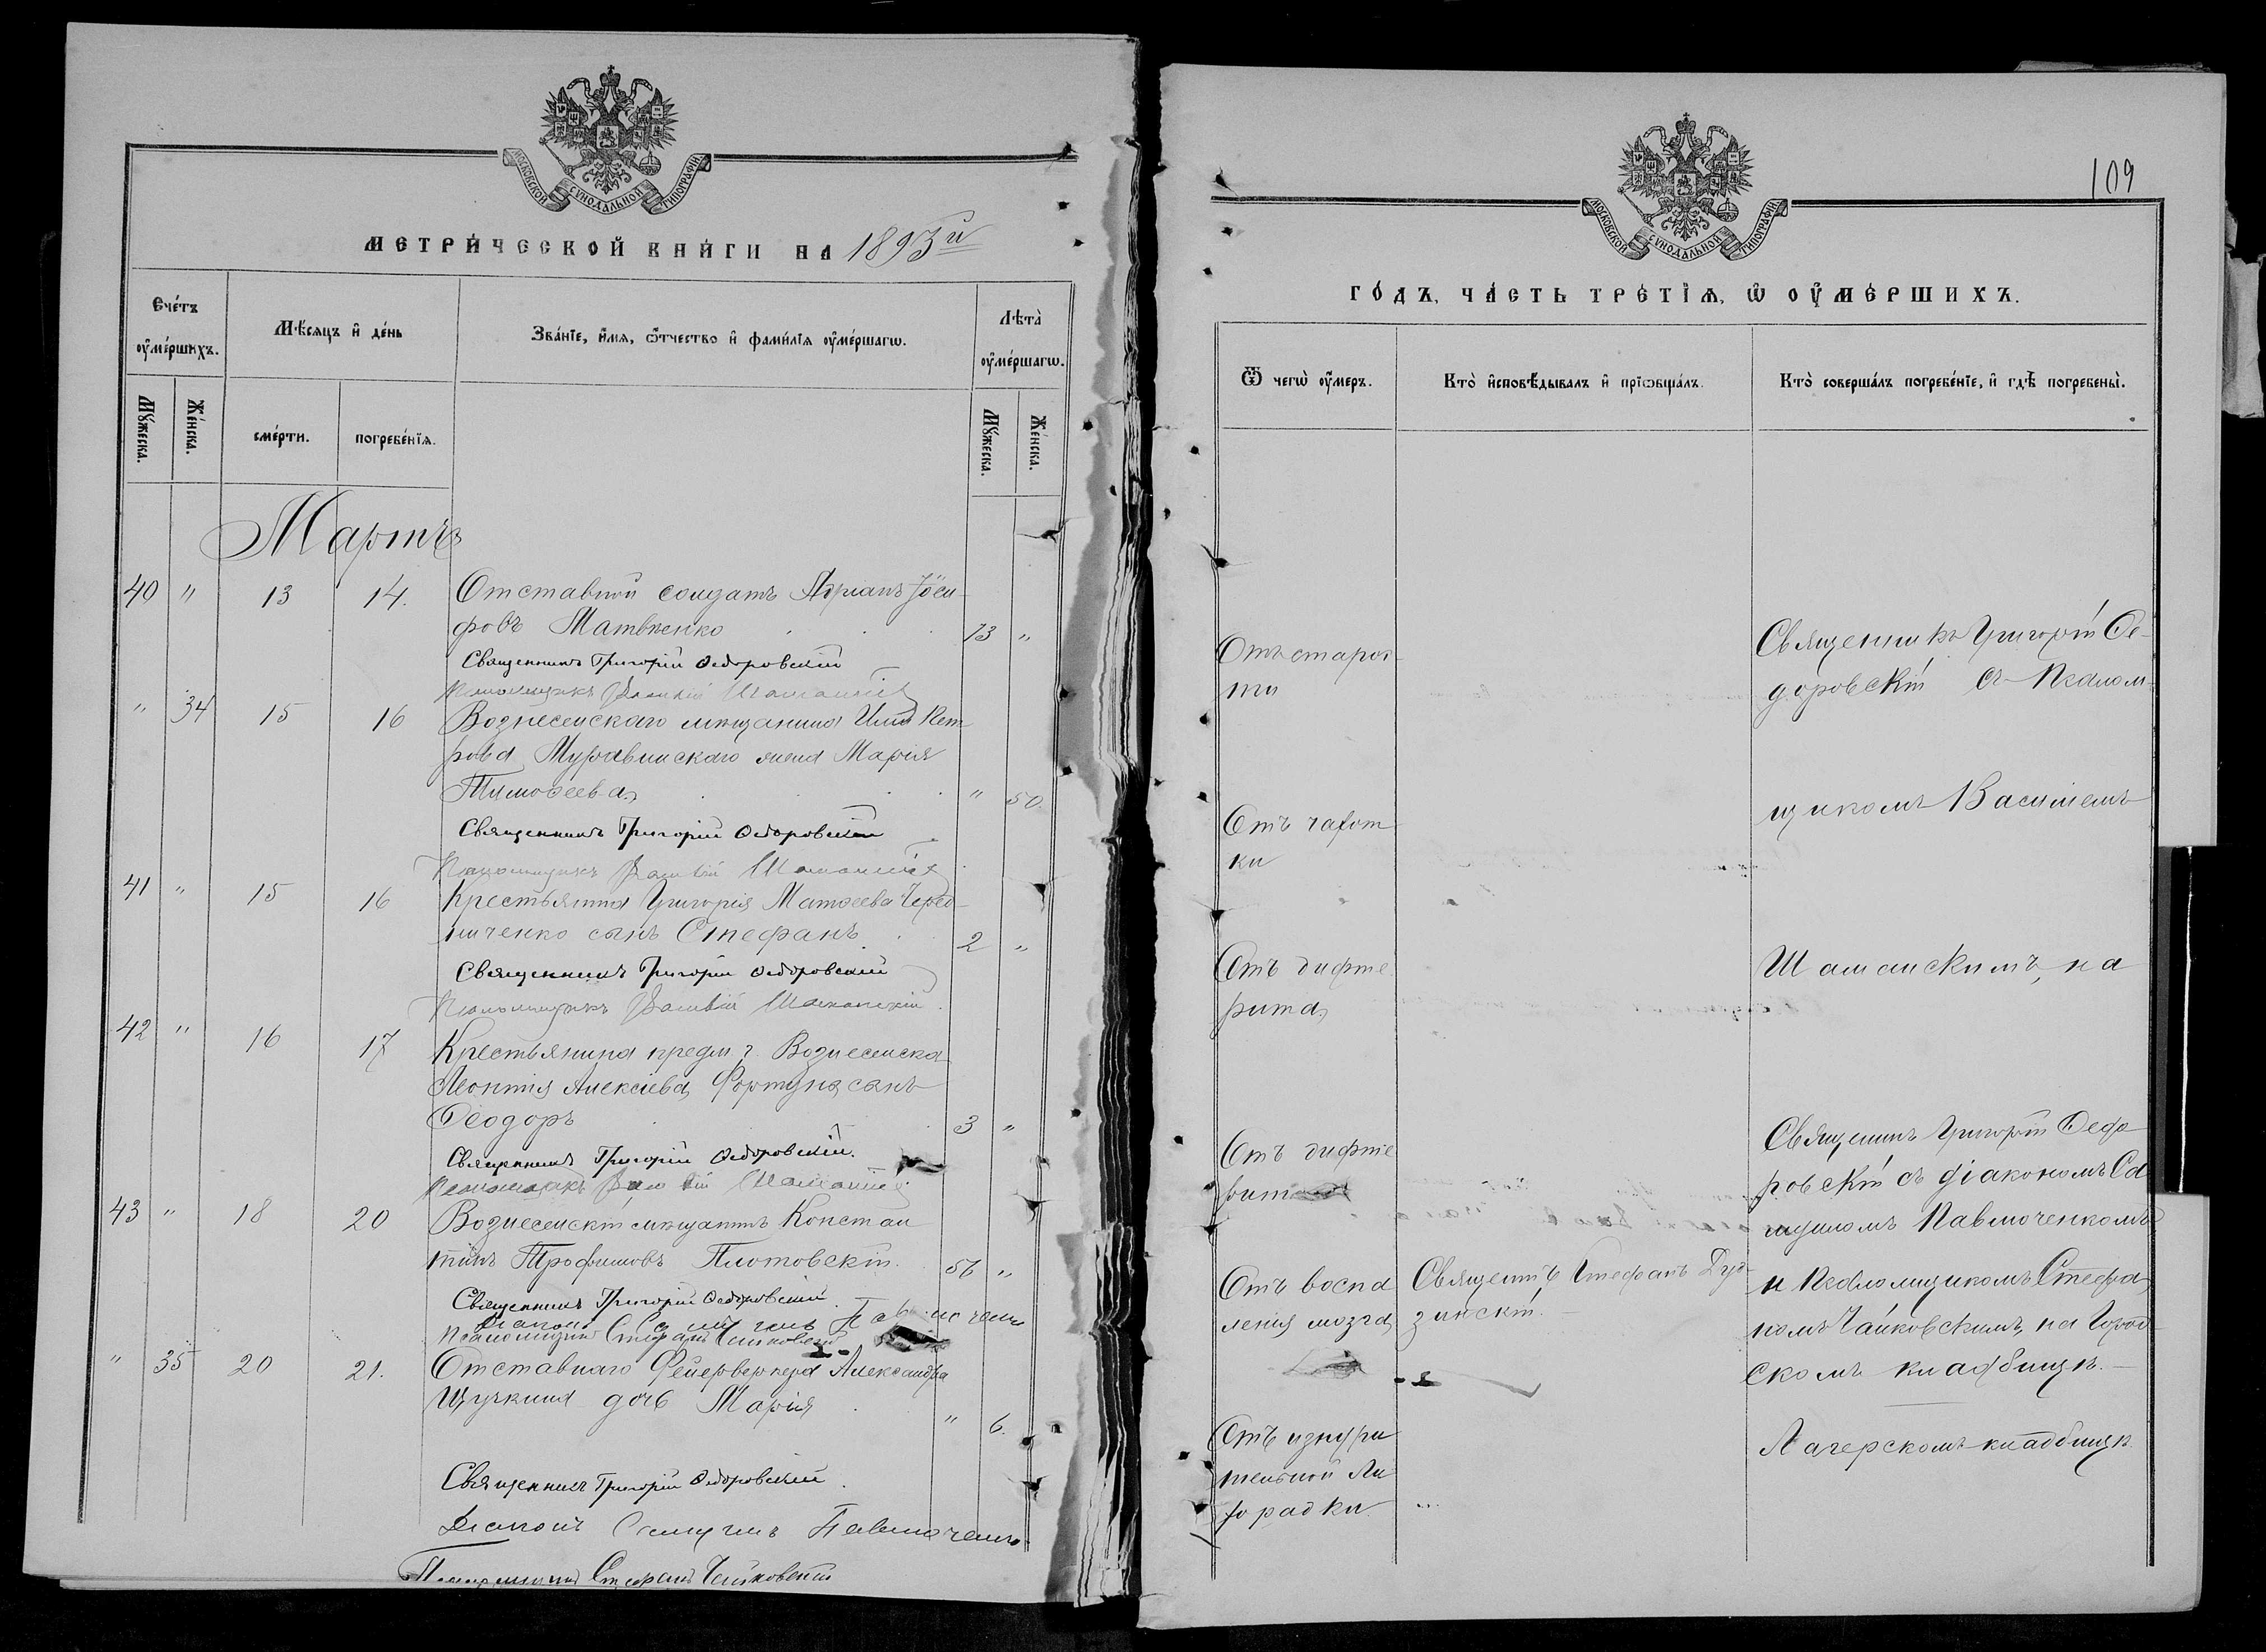 МОСКОВСКОЙ СѴНОДАЛЬНОЙ ТИПОГРАФІИ
МЕТРИ́ЧЕСКОЙ КНИ́ГИ НА 1893й
Счéтъ ᲂу҆ме́ршихъ.
Мѣ́сяцъ и҆ де́нь
Зва́нїе, и҆́мѧ, ѻ҆́тчество и҆ фами́лїѧ ᲂу҆ме́ршагѡ.
Лѣта̀ ᲂу҆ме́ршагѡ.
Мꙋ́жеска.
Же́нска.
сме́рти.
погребе́нїѧ.
Мꙋ́жеска.
Же́нска.
Мартъ
40 " 13 14. Отставной солдатъ Адріанъ Іоси-
фовъ Матвѣенко 73 "
Священникъ Григорій Ѳедоровскій
Псаломщикъ Василій Шаманскій
" 34 15 16 Вознесенскаго мѣщанина Иліи Пет
рова Муравинскаго жена Марія
Тимоѳеева " 50.
Священникъ Григорій Ѳедоровскій
Псаломщикъ Василій Шаманскій
41 " 15 16 Крестьянина Григорія Матѳеева Черед-
ниченко сынъ Стефанъ 2 "
Священникъ Григорій Ѳедоровскій
Псаломщикъ Василій Шаманскій
42 " 16 17 Крестьянина предм г. Вознесенска
Леонтія Алексіева Фортуна сынъ
Ѳеодоръ 3 "
Священникъ Григорій Ѳедоровскій.
Псаломщикъ Василій Шаманскій
43 " 18 20 Вознесенскій мѣщанинъ Констан
тинъ Трофимовъ Плотовскій. 56 "
Священникъ Григорій Ѳедоровскій
Діаконъ Самуилъ Павлюченко
Псаломщикъ Стефанъ Чайковскій
" 35 20 21. Отставнаго Фейерверкера Александра
Щучкина дочь Марія " 6.
Священникъ Григорій Ѳедоровскій
Діаконъ Самуилъ Павлюченко
Псаломщикъ Стефанъ Чайковскій
109
МОСКОВСКОЙ СѴНОДАЛЬНОЙ ТИПОГРАФІИ
ГО́ДЪ, ЧА́СТЬ ТРЕ́ТЇѦ, Ѡ ОУ҆МЕ́РШИХЪ.
Ѿ чегѡ̀ ᲂу҆́меръ.
Кто̀ и҆сповѣ́дывалъ и҆ прїѡбща́лъ.
Кто̀ соверша́лъ погребе́нїе, и҆ гдѣ̀ погребены̀.
Отъ старос-
ти
Священникъ Григорій Ѳе-
доровскій съ Псалом-
Отъ чахот
ки
щикомъ Василіемъ
Отъ дифте
рита
Шаманскимъ, на
Отъ дифте
рита
Священникъ Григорій Ѳедо
ровскій съ діакономъ Са
муиломъ Павлюченкомъ
Отъ воспа
ленія мозга
Священникъ Стефанъ Дур-
зинскій.
и Псаломщикомъ Стефа
номъ Чайковскимъ, на Город
скомъ кладбищѣ.
Отъ изнури
тельной Ли
хорадки
Лагерскомъ кладбищѣ